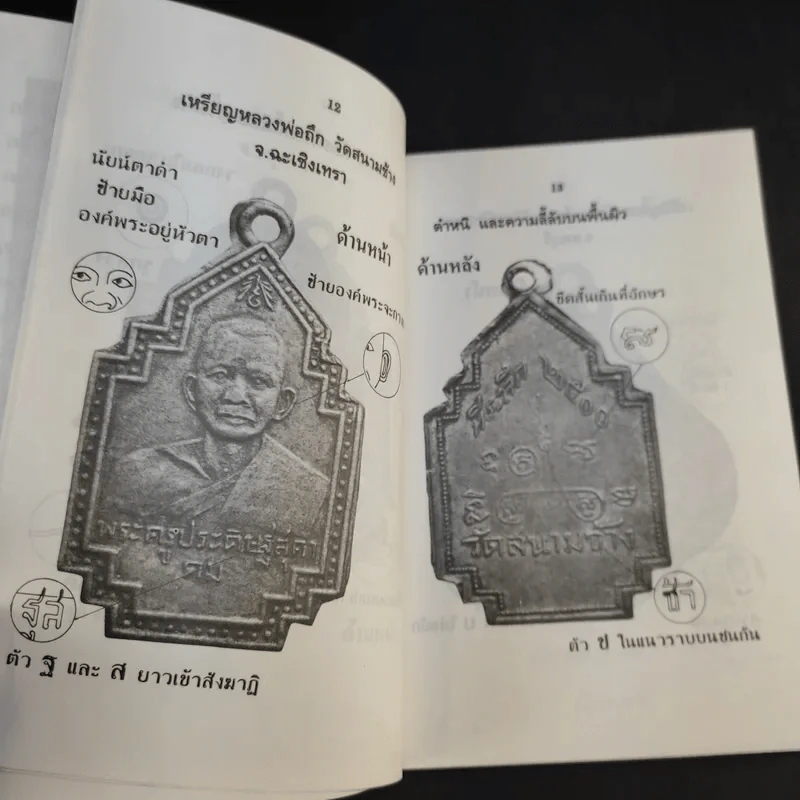 12
เหรียญหลวงพ่อถึก วัดสนามช้าง
จ.ฉะเชิงเทรา
นัยน์ตาดำ
ซ้ายมือ
องค์พระอยู่หัวตา
ด้านหน้า
ซ้ายองค์พระจะ
พระครูประดิษฐ์สุตา
คม
ฐส
ตัว ฐ และ ส ยาวเข้าสังฆาฏิ
13
ตำหนิ และความลี้ลับบนพื้นผิว
ด้านหลัง
ขีดสั้นเกินที่อักษา
ที่ระลึก ๒๕๐๐
วัดสนามช้าง
ช้า
ตัว ช ในแนวราบบนชนกัน